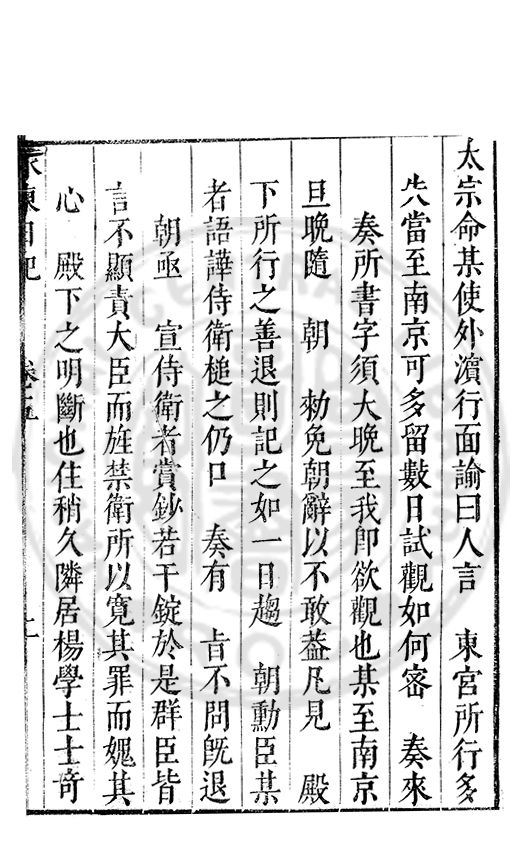 太宗命某使外濵行面諭曰人言　東宮所行多
失當至南京可多留數日試觀如何密　奏來
奏所書字須大晚至我即欲觀也某至南京
旦晚隨　朝　勑免朝辭以不敢葢凡見　殿
下所行之善退則記之如一日趨　朝勳臣某
者語譁侍衛槌之仍口　奏有　旨不問旣退
朝亟　宣侍衛者賞鈔若干錠於是羣臣皆
言不顯責大臣而旌禁衛所以寬其罪而媿其
心　殿下之明斷也住稍久隣居楊學士士奇
東日記　卷五